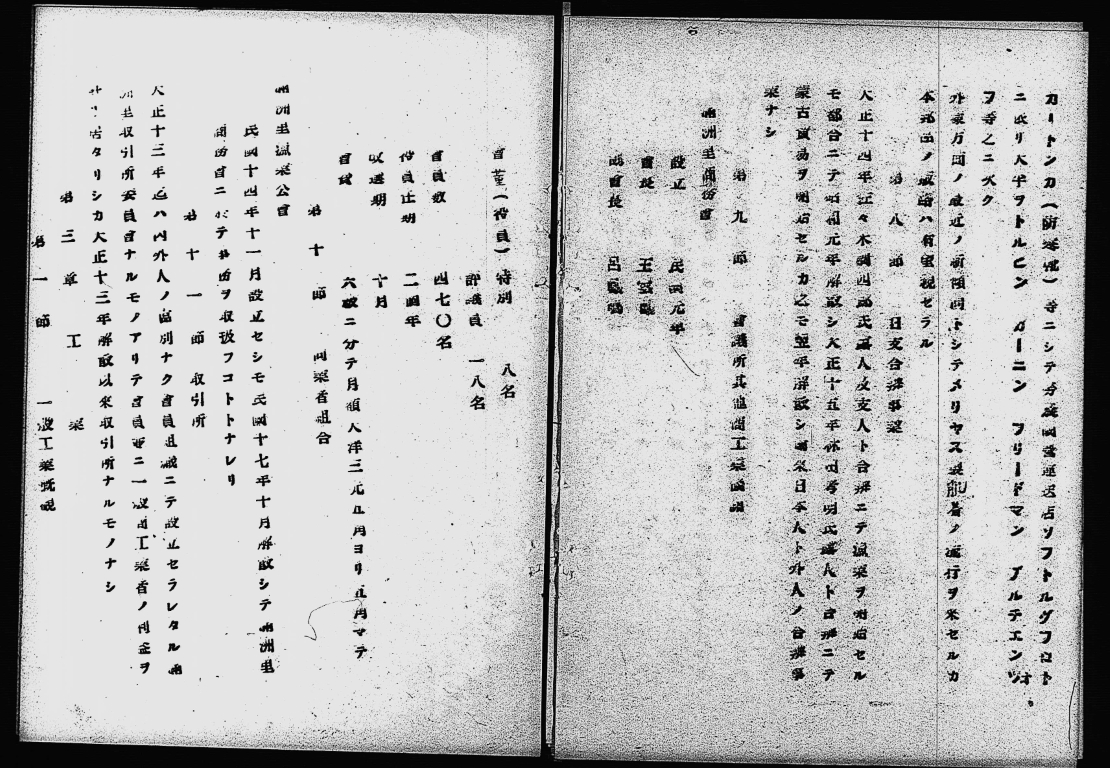 カートンカ（防寒靴）等ニシテ労農国営運送店ソフトルグフロト
ニ依リ大半ヲトルピン ガーニン フリードマン アルテエンツオ
ヲ等之ニ次ク
外蒙方面ノ最近ノ新傾向トシテメリヤス製肌着ノ流行ヲ来セルカ
本邦品ノ販路ハ有望視セラル
第八節 日支合弁事業
大正十四年近々木樹四郎氏露人及支人ト合弁ニテ漁業ヲ開始セル
モ都合ニテ昭和元年解散シ大正十五年休田秀明氏露人ト合弁ニテ
蒙古貿易ヲ開始セルカ之モ翌年解散シ爾来日本人ト外人ノ合弁事
業ナシ
第九節 会議所其他商工業機関
満洲里商務会
設立 民国元年
会長 王
副会長 呂
会董（役員） 特別 八名
評議員 一八名
会員数 四七〇名
役員任期 二個年
改選期 十月
会費 六級ニ分テ月額大洋三元五角ヨリ五角マテ
第十節 同業者組合
満洲里漁業公会
民国十四年十一月設立セシモ民国十七年十月解散シテ満洲里
商務会ニ於テ事務ヲ取扱フコトトナレリ
第十一節 取引所
大正十三年迄ハ内外人ノ区別ナク会員組織ニテ設立セラレタル満
洲里取引所委員会ナルモノアリテ会員並ニ一般商工業者ノ利益ヲ
計リ居タリシカ大正十三年解散以来取引所ナルモノナシ
第三章 工業
第一節 一般工業概況